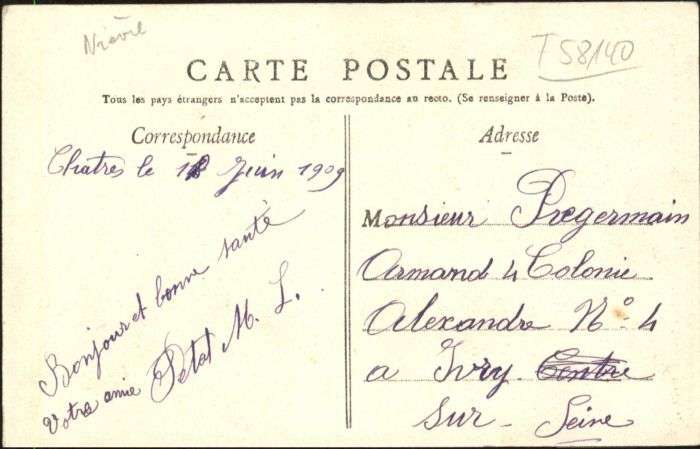 T 58/140
CARTE POSTALE
Tous les pays étrangers n'acceptent pas la correspondance au recto. (Se renseigner à la Poste).
Correspondance
Chatres le 18 Juin 1909
Bonjour et bonne santé
Votre amie Petat M. L.
Adresse
Monsieur Pregermain
Armand 4 Colonie
Alexandre No. 4
a Ivry Centre
sur-Seine